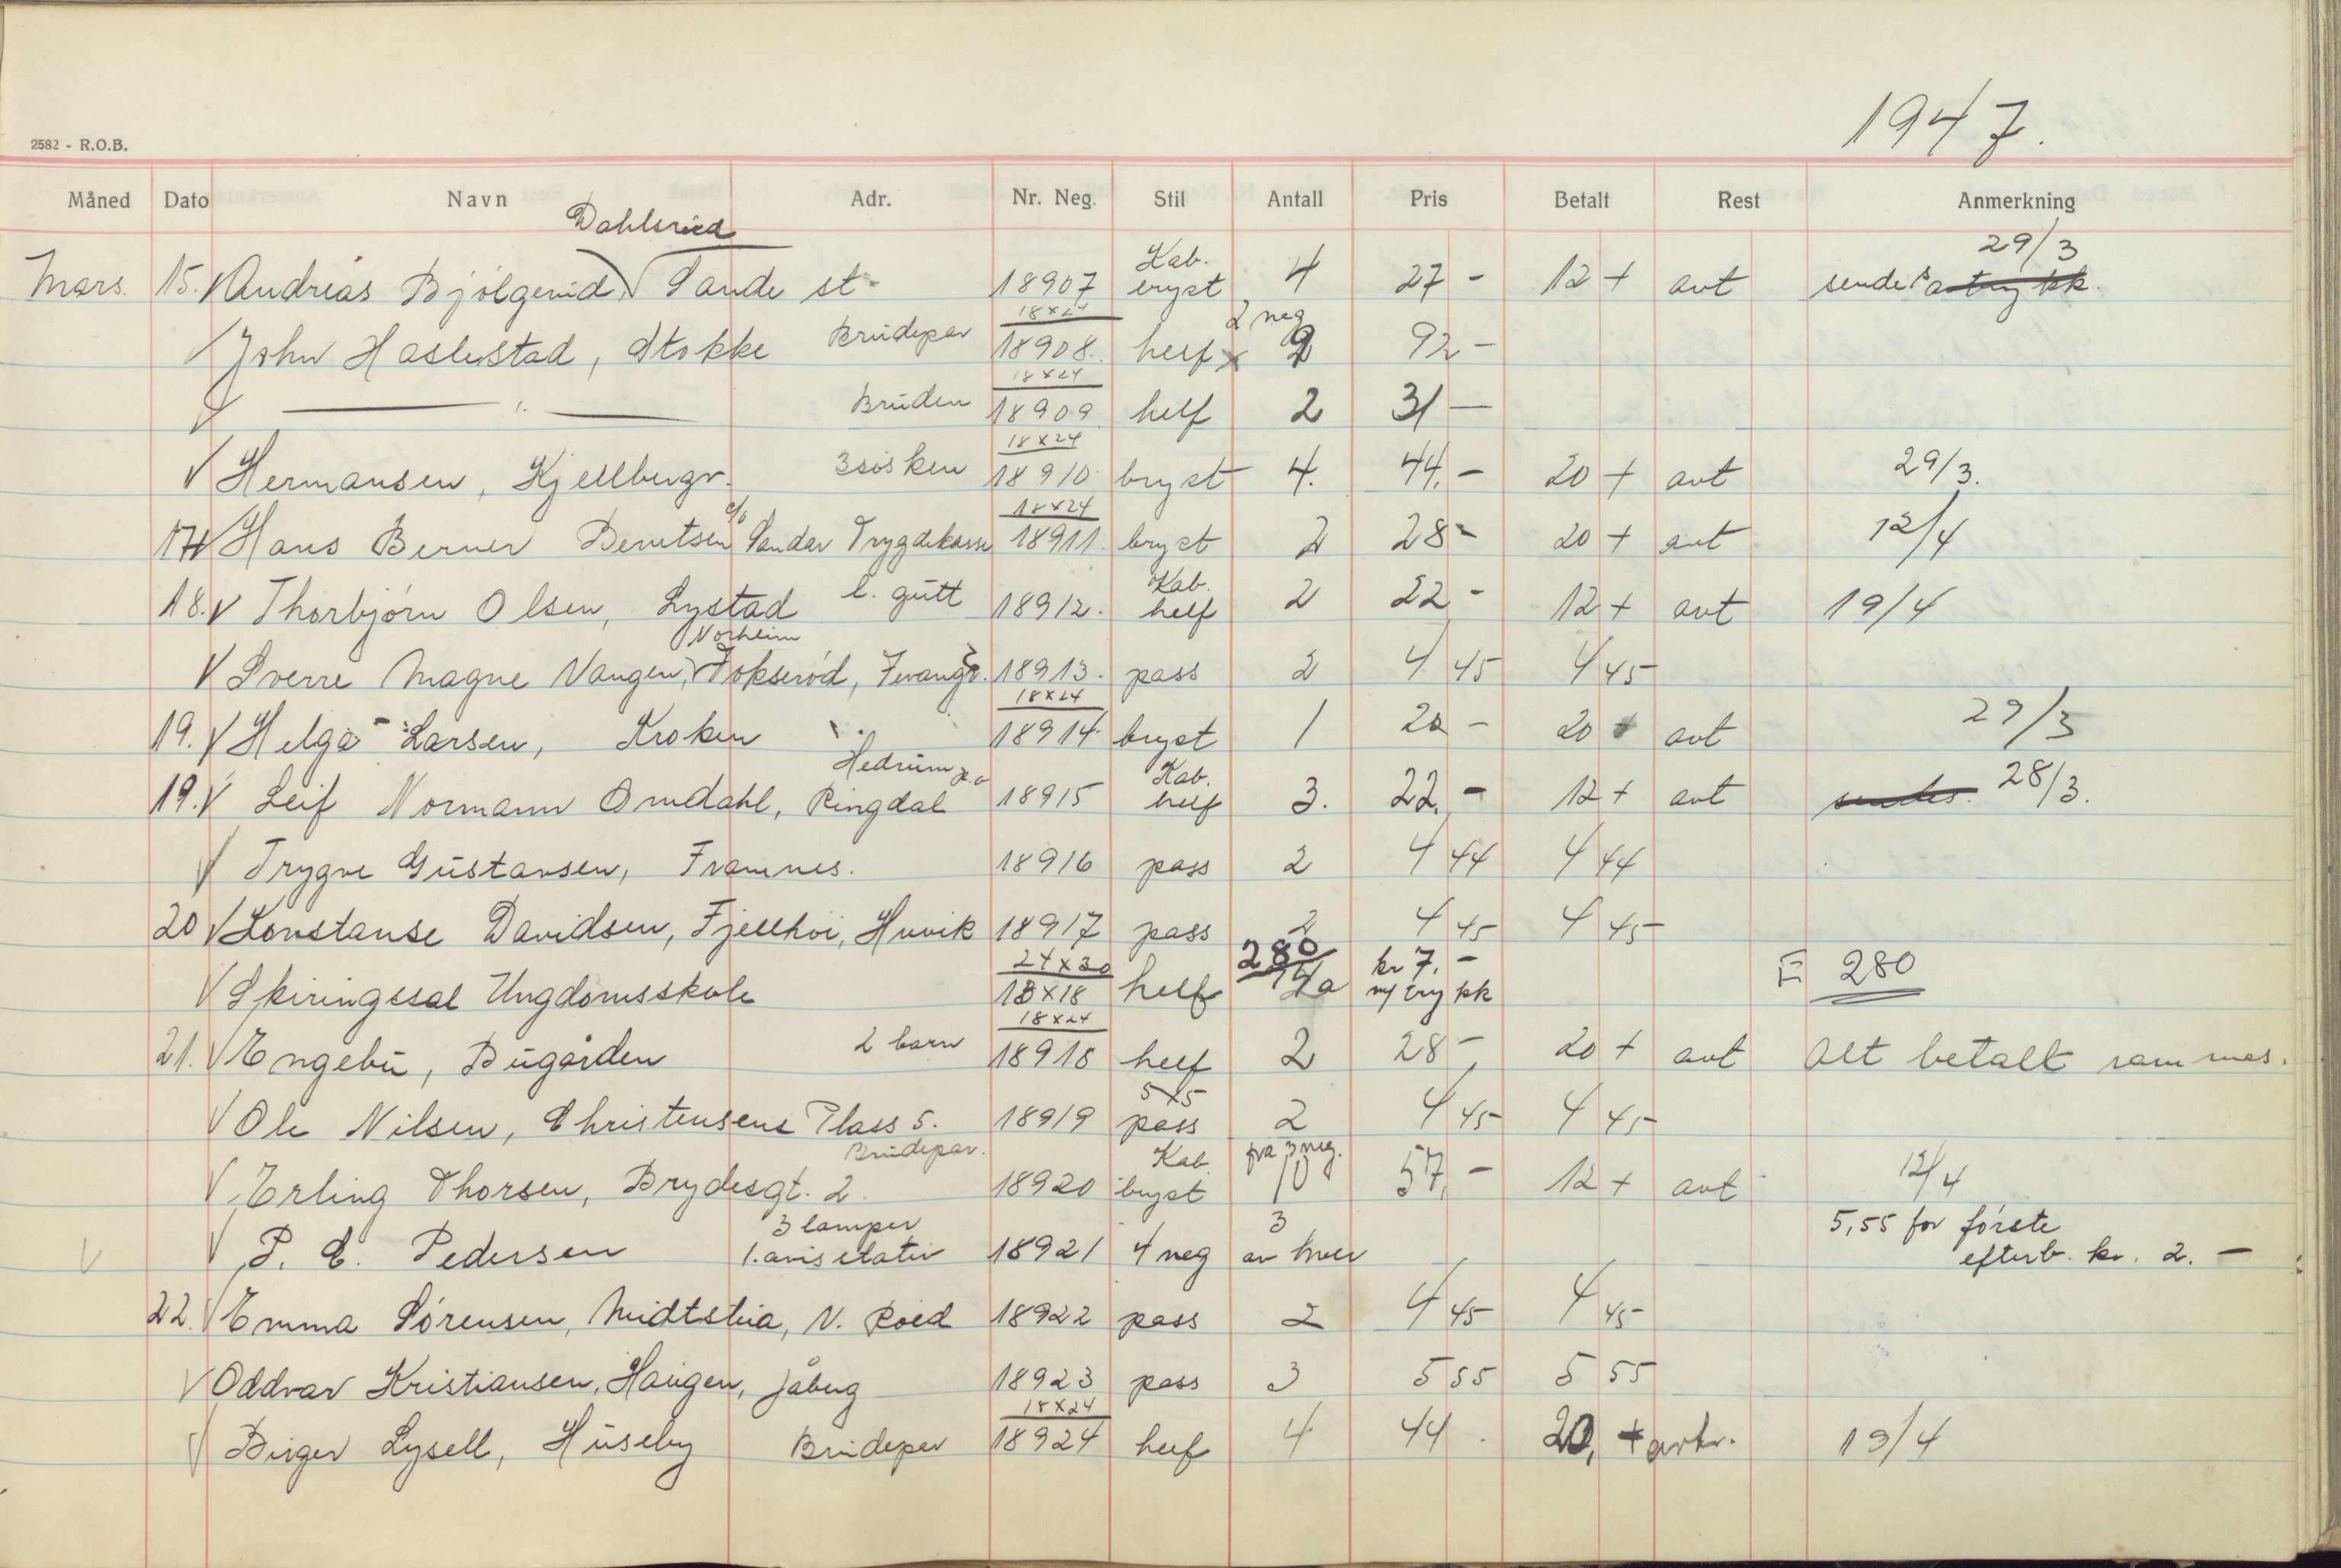 1947.
2582 - R.O.B.
Måned Dato Navn Adr. Nr. Neg. Stil Antall Pris Betalt Rest Anmerkning
Dahlsrud
Kab. 29/3
Mars. 15. Andreas Bjölgerud, Sande st. 18907 bryst 4 27 - 12 + avt sendes avtrykk.
18x24 2 neg
John Haslestad, Stokke Brudepar 18908. helf x 92 -
18x24
— " — Bruden 18909 helf 2 31 —
18x24
Hermansen, Kjellbergv. 3 søsken 18910 bryst 4. 44,- 20 + avt 29/3.
18x24
17 Hans Berner Berntsen c/o Sandar Trygdekasse 18911 bryst 2 28 - 20 + avt 12/4
Kab.
18. Thorbjørn Olsen, Lystad l. gutt 18912. helf 2 22 - 12 + avt 19/4
Norheim
Sverre Magne Vangen, Fokserød, 18913. pass 2 4 45 4 45
18x24
19. Helga Larsen, Kroken 18914 bryst 1 20 - 20 + avt 29/3
Hedrum p.o Kab.
19. Leif Normann Omdahl, Ringdal 18915 helf 3. 22,- 12 + avt sendes. 28/3.
Trygve Gustavsen, Framnes. 18916 pass 2 4 44 4 44
20 Konstanse Davidsen, Fjellhøi, Huvik 18917 pass 2 4 45 4 45
24x30 280 kr 7,-
Skiringssal Ungdomsskole 18x18 helf m/ trykk 280
18x24
21. Engebu, Bugården 2 barn 18918 helf 2 28 - 20 + avt Alt betalt
5x5
Ole Nilsen, Christensens Plass 5. 18919 pass 2 4 45 4 45
Brudepar. Kab. fra 3 neg.
Erling Thorsen, Brydesgt. 2. 18920 bryst 10 57,- 12 + avt 12/4
3 lamper 3 5,55 for første
P. C. Pedersen 1. avisstativ 18921 4 neg av hver efterb. kr. 2. -
22. Emma Sørensen, Midtstua, N. Roed 18922 pass 2 4 45 4 45
Oddvar Kristiansen, Haugen, Jåberg 18923 pass 3 5 55 5 55
18x24
Birger Lysell, Huseby Brudepar 18924 helf 4 44. 20, + 19/4